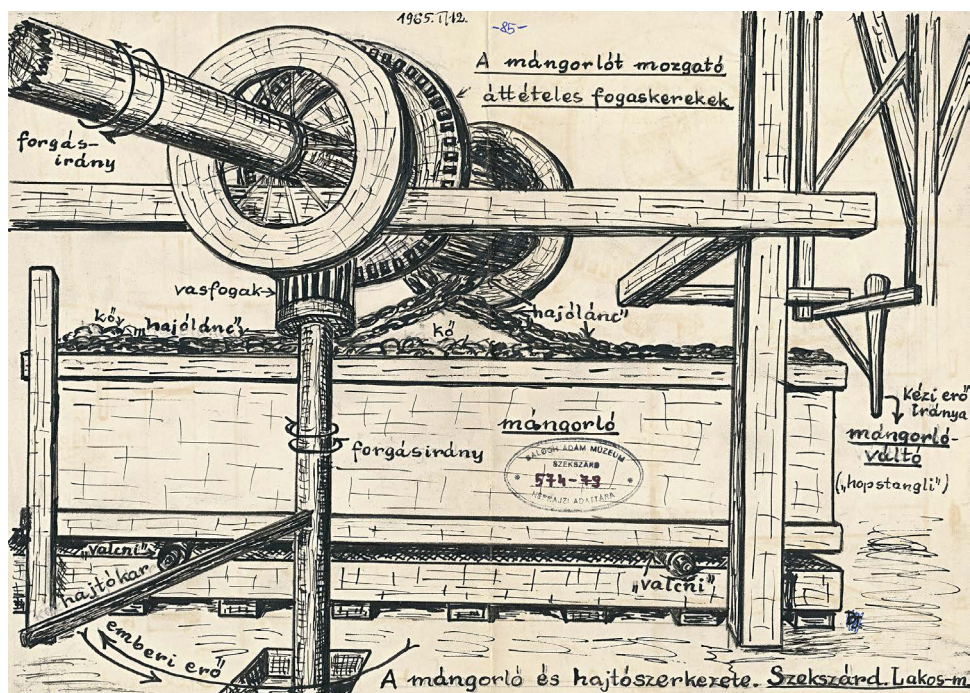 1965. II. 12.
-85-
A mángorlót mozgató
áttételes fogaskerekek
forgás-
irány
vasfogak
kő
„hajólánc”
kő
„hajólánc”
kézi erő
iránya
mángorló-
váltó
(„hopstangli”)
mángorló
forgásirány
BALOGH ÁDÁM MÚZEUM
SZEKSZÁRD
574-79
NÉPRAJZI ADATTÁRA
„valcni”
„valcni”
hajtókar
emberi erő
A mángorló és hajtószerkezete. Szekszárd. Lakos-m.